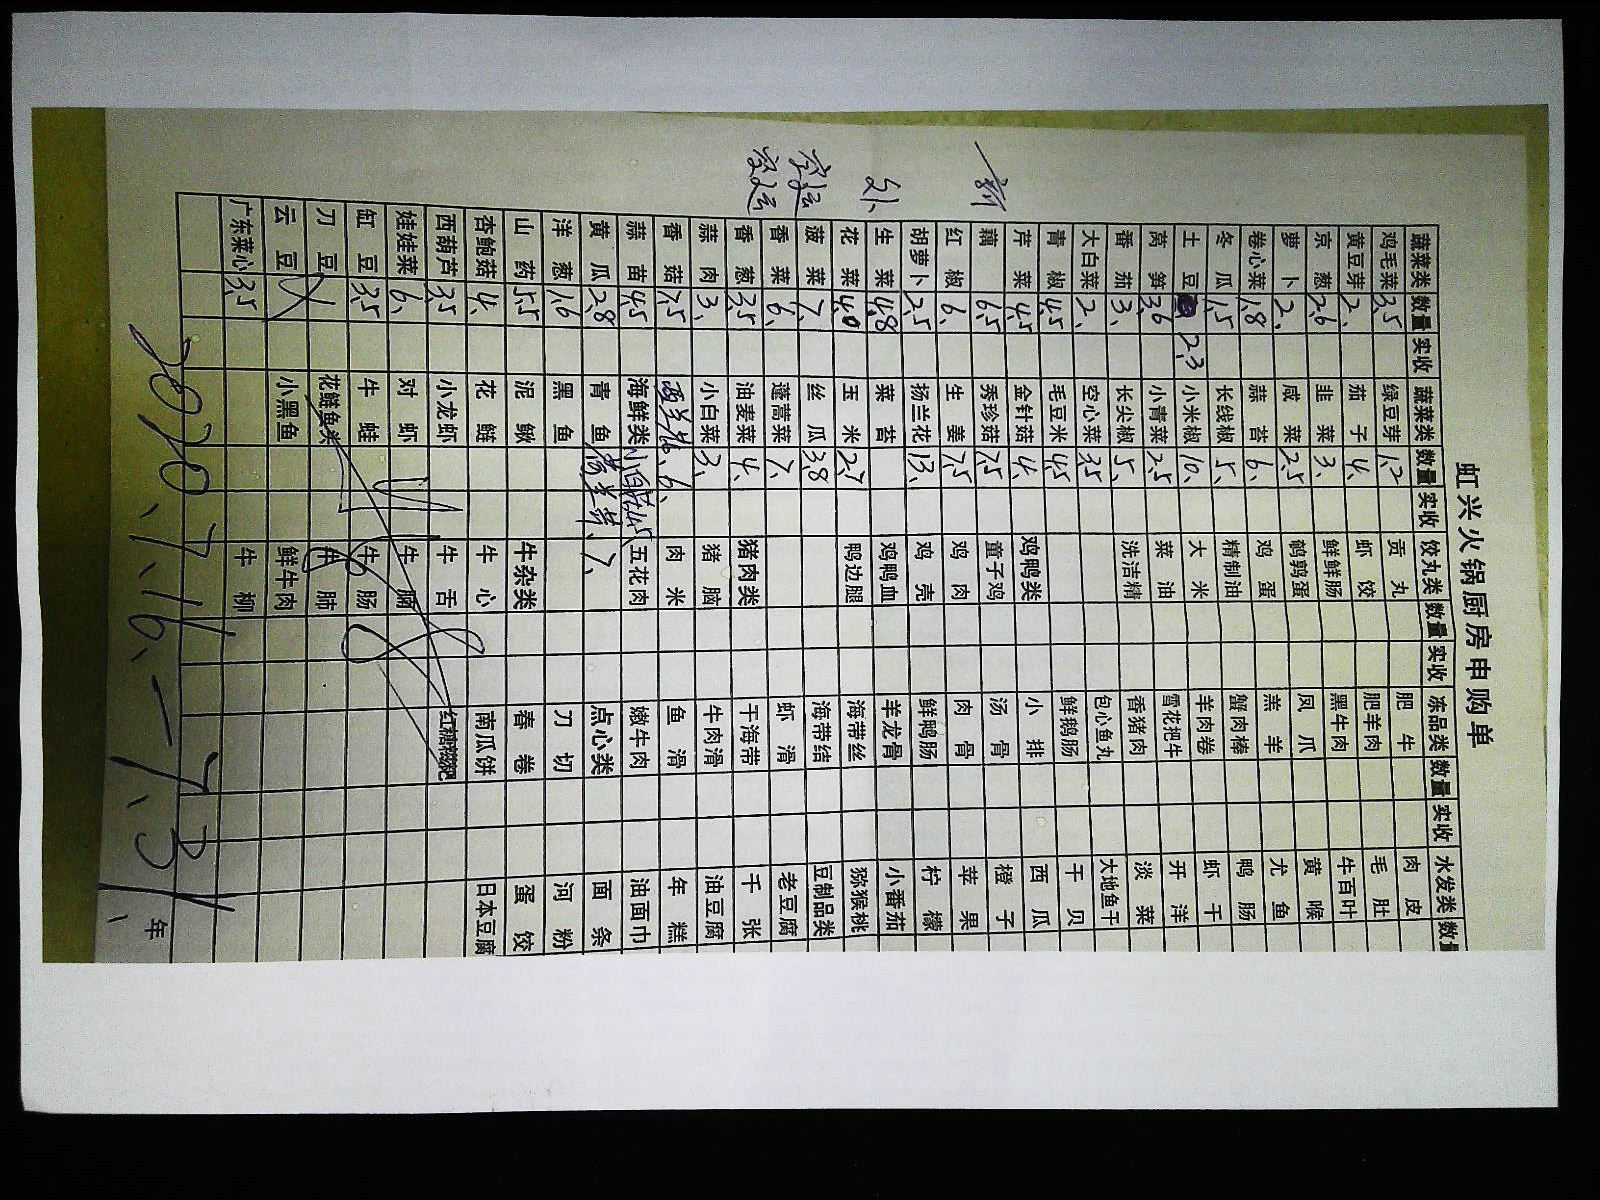 虹兴火锅厨房申购单
蔬菜类 数量 实收 蔬菜类 数量 实收 饺丸类 数量 实收 冻品类 数量 实收 水发类 数量
鸡毛菜 3.5 绿豆芽 1.2 贡丸 肥牛 肉皮
黄豆芽 2. 茄子 4. 虾饺 肥羊肉 毛肚
京葱 2.6 韭菜 3. 鲜鲜肠 黑牛肉 牛百叶
萝卜 2. 咸菜 3.5 鹌鹑蛋 凤爪 黄喉
卷心菜 1.8 蒜苔 6. 鸡蛋 羔羊 尤鱼
冬瓜 1.5 长线椒 5. 精制油 蟹肉棒 鸭肠
土豆 2.3 小米椒 10. 大米 羊肉卷 虾干
莴笋 3.6 小青菜 2.5 菜油 雪花把牛 开洋
番茄 3. 长尖椒 5. 洗洁精 香猪肉 淡菜
大白菜 2. 空心菜 3.5 包心鱼丸 大地鱼干
青椒 4.5 毛豆米 4.5 鲜鹅肠 干贝
芹菜 4.5 金针菇 4. 鸡鸭类 小排 西瓜
藕 6.5 秀珍菇 7.5 童子鸡 汤骨 橙子
红椒 6. 生姜 7.5 鸡肉 肉骨 苹果
胡萝卜 2.5 扬兰花 13. 鸡壳 鲜鸭肠 柠檬
生菜 4.8 菜苔 鸡鸭血 羊龙骨 小番茄
花菜 4.0 玉米 2.7 鸭边腿 海带丝 猕猴桃
菠菜 7. 丝瓜 3.8 海带结 豆制品类
香菜 6. 蓬蒿菜 7. 虾滑 老豆腐
香葱 3.5 油麦菜 4. 猪肉类 干海带 千张
蒜肉 3. 小白菜 3. 猪脑 牛肉滑 油豆腐
香菇 7.5 西兰花 6. 肉米 鱼滑 年糕
蒜苗 4.5 海鲜类 4.5 五花肉 嫩牛肉 油面巾
黄瓜 2.8 青鱼 7. 点心类 面条
洋葱 1.6 黑鱼 刀切 河粉
山药 5.5 泥鳅 牛杂类 春卷 蛋饺
杏鲍菇 4. 花鲢 牛心 南瓜饼 日本豆腐
西葫芦 3.5 小龙虾 牛舌 红糖糍粑
娃娃菜 6. 对虾 牛腩
缸豆 3.5 牛蛙 牛肠
刀豆 花鲢鱼类 牛肺
云豆 小黑鱼 鲜牛肉
广东菜心 3.5 牛柳
年